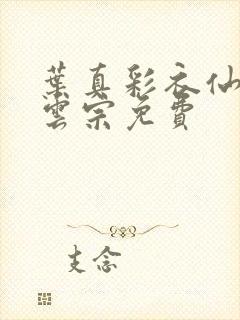 葉真彩衣仙
雲宗免費
支念